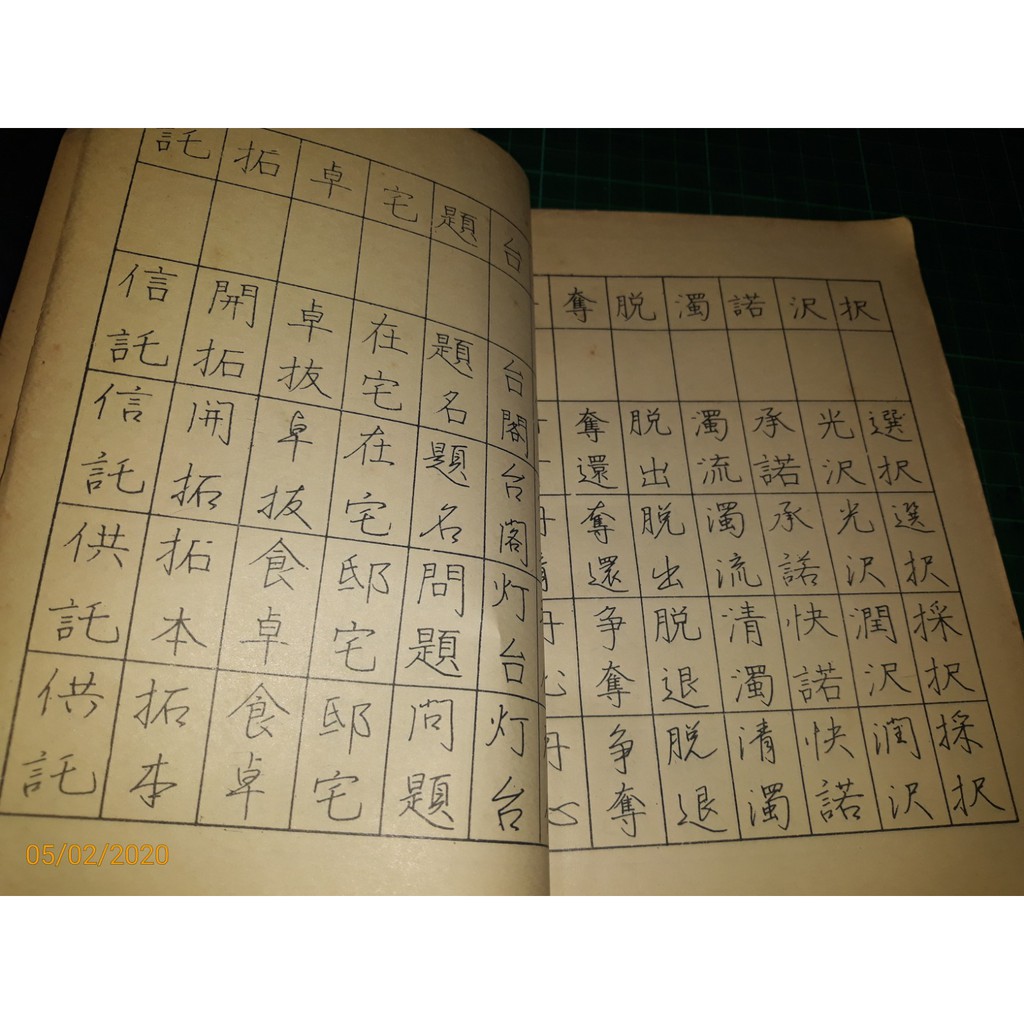 択 選択 選択 採択 採択
沢 光沢 光沢 潤沢 潤沢
諾 承諾 承諾 快諾 快諾
濁 濁流 濁流 清濁 清濁
脱 脱出 脱出 脱退 脱退
奪 奪還 奪還 争奪 争奪
台 台閣 台閣 灯台 灯台
題 題名 題名 問題 問題
宅 在宅 在宅 邸宅 邸宅
卓 卓抜 卓抜 食卓 食卓
拓 開拓 開拓 拓本 拓本
託 信託 信託 供託 供託
05/02/2020